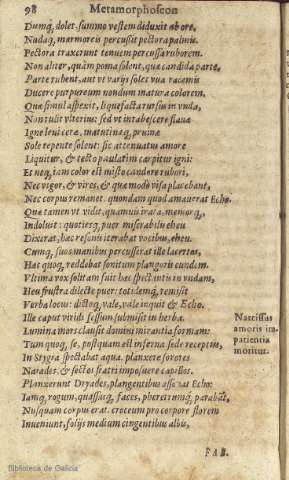 98 Metamorphoseon
Dumq, dolet, summo vestem diduxit ab ore,
Nudaq, marmoreis percussit pectora palmis.
Pectora traxerunt tenuem percussa ruborem.
Non aliter, quàm poma solent, quæ candida parte,
Parte rubent, aut vt varijs solet vua racemis
Ducere purpureum nondum matura colorem.
Quæ simul aspexit, liquefacta rursus in vnda,
Non tulit vlterius: sed vt intabescere flauæ
Igne leui ceræ, matutinaq, pruinæ
Sole tepente solent: sic attenuatus amore
Liquitur, & tecto paulatim carpitur igni:
Et neq, iam color est misto candore rubori,
Nec vigor, & vires, & quæ modò visa placebant,
Nec corpus remanet. quondam quod amauerat Echo.
Quæ tamen vt vidit, quamuis irata, memorq,
Indoluit: quotiesq, puer miserabilis eheu
Dixerat, hæc resonis iterabat vocibus, eheu.
Cumq, suos manibus percusserat ille lacertos,
Hæc quoq, reddebat sonitum plangoris eundem.
Vltima vox solitam fuit hæc spectantis in vndam,
Heu frustra dilecte puer: totidemq, remisit
Verba locus: dictoq, vale, vale inquit & Echo.
Ille caput viridi fessum submisit in herba.
Lumina mors clausit domini mirantia formam:
Tum quoq, se, postquam est inferna sede receptus,
In Stygia spectabat aqua. planxere sorores
Naiades: & sectos fratri imposuere capillos.
Planxerunt Dryades, plangentibus assonat Echo:
Iamq, rogum, quassasq, faces, pheretrumq, parabāt,
Nusquam corpus erat. croceum pro corpore florem
Inueniunt, folijs medium cingentibus albis,
Narcissus
amoris im
patientia
moritur.
FAB.
Biblioteca de Galicia